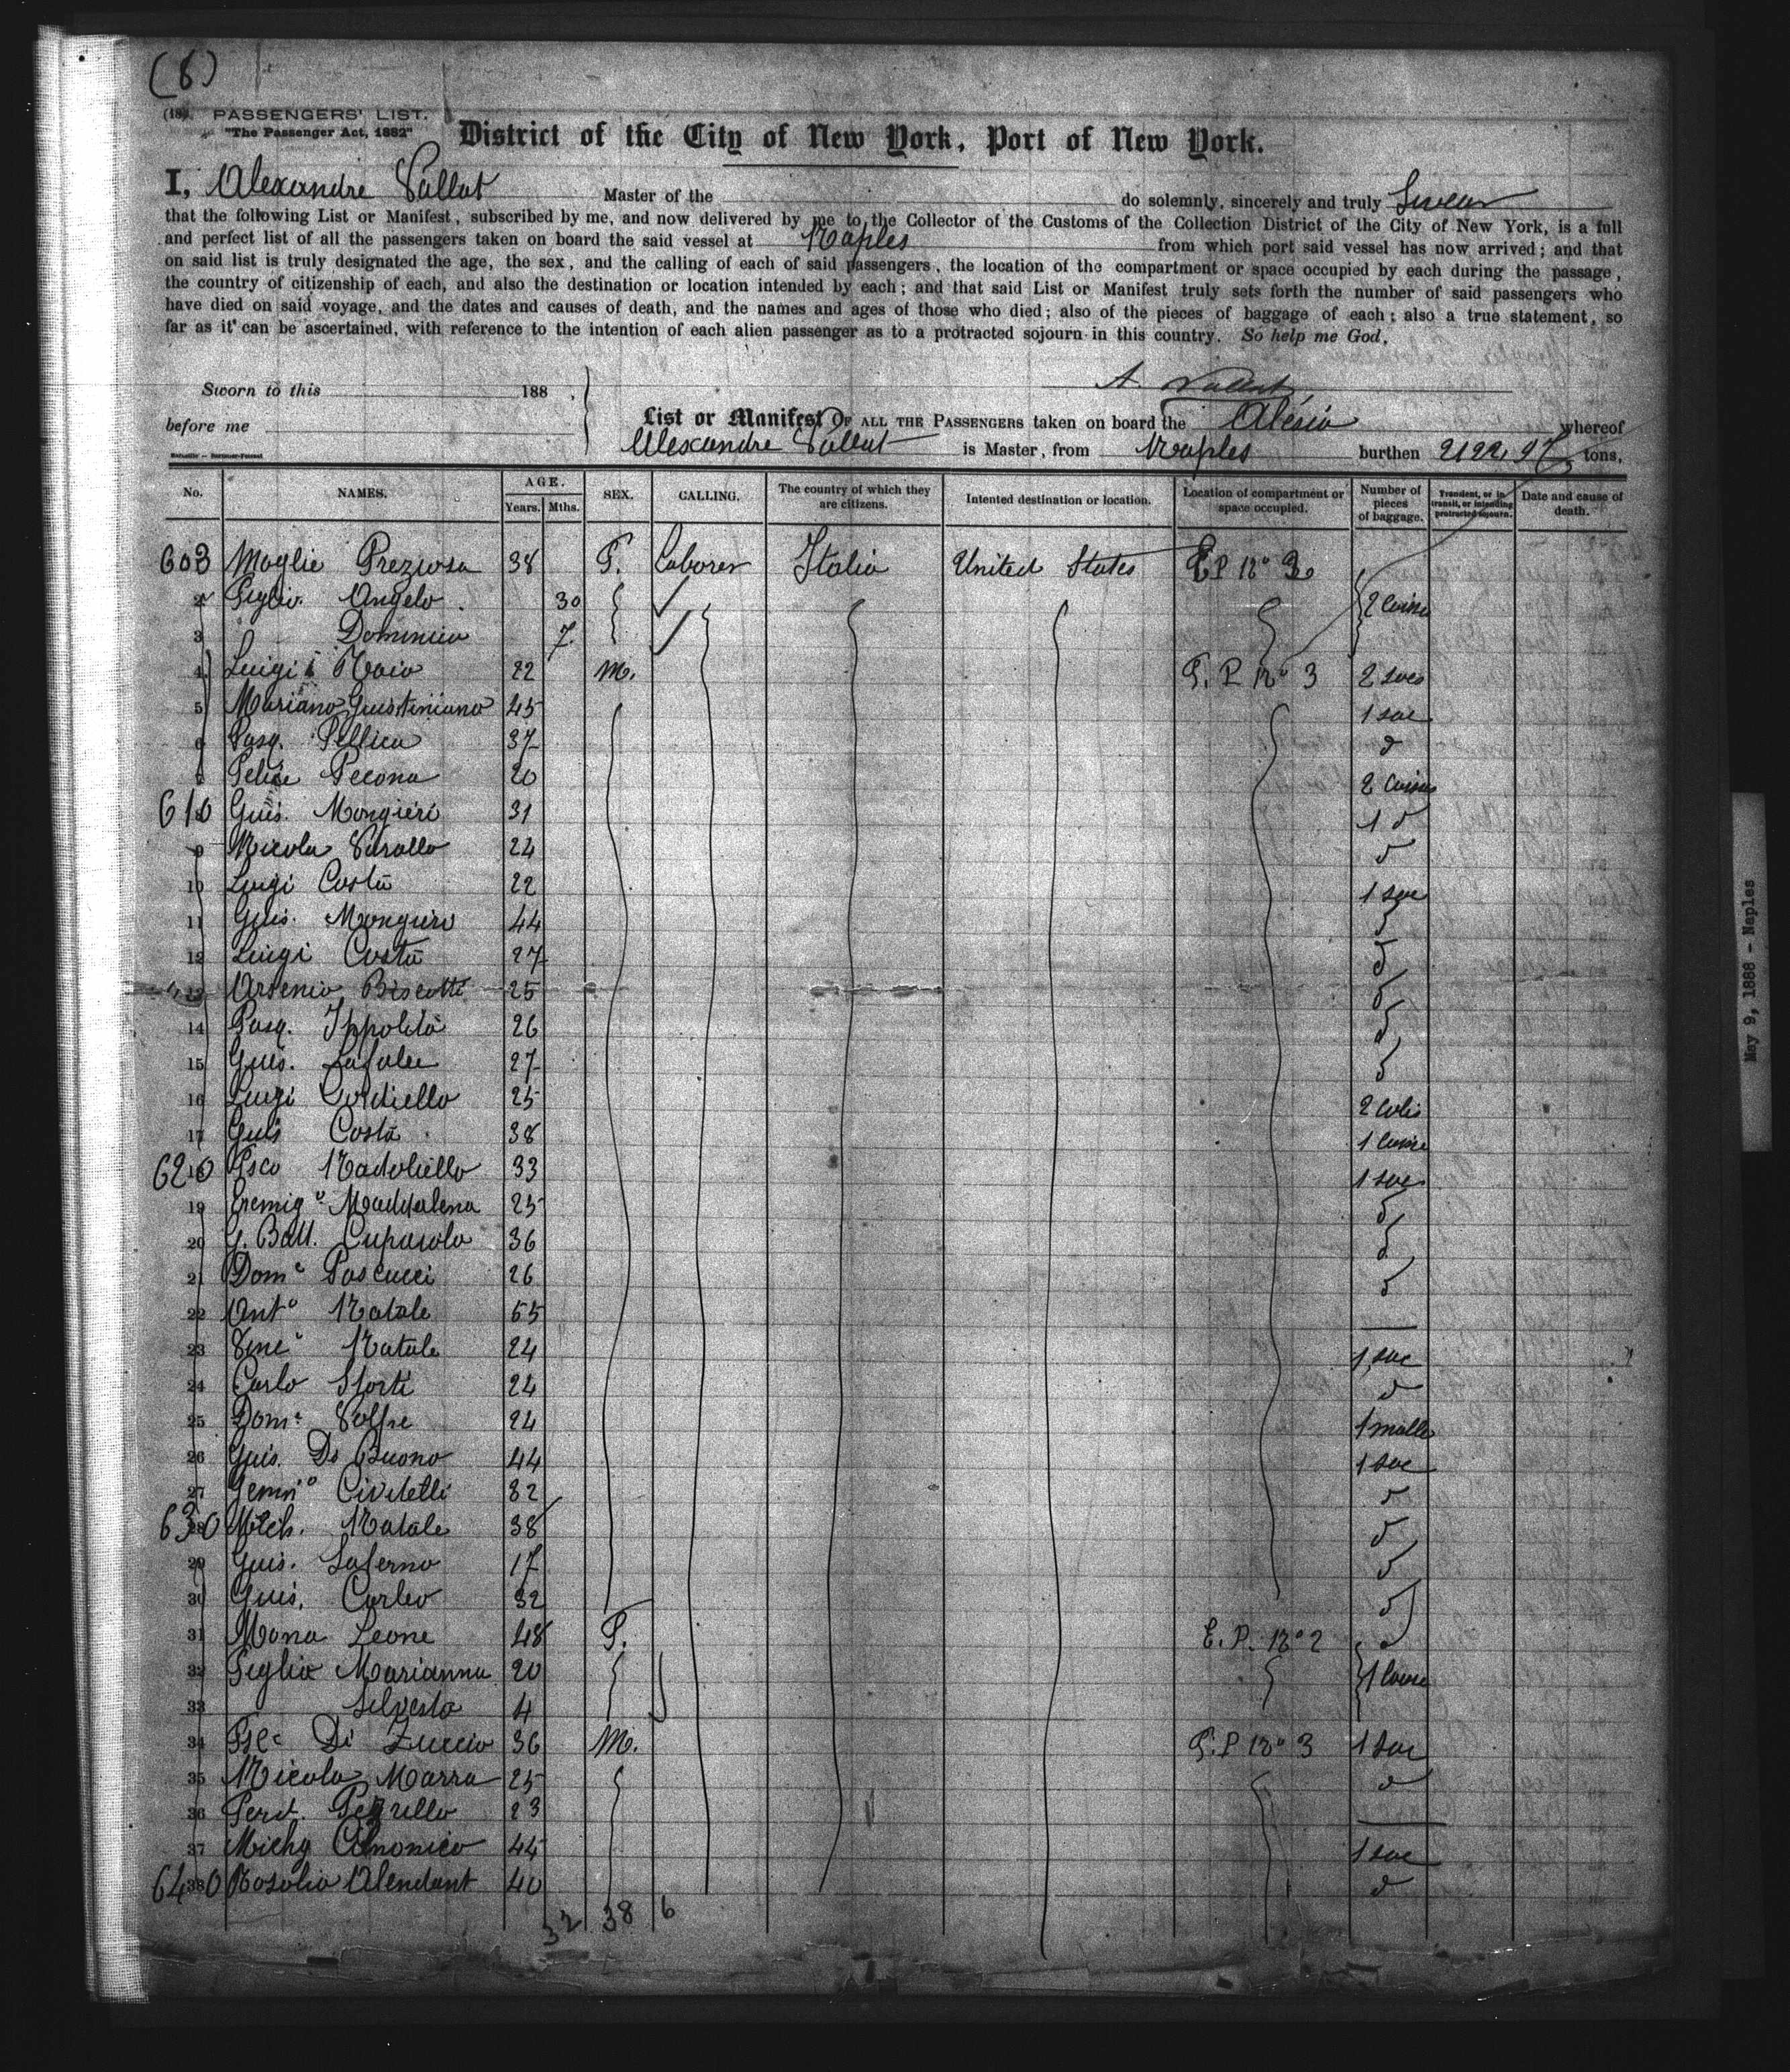 (6)
(18) PASSENGERS' LIST.
"The Passenger Act, 1882"
District of the City of New York, Port of New York.
I, Alexandre Vallat Master of the do solemnly, sincerely and truly Swear
that the following List or Manifest, subscribed by me, and now delivered by me to the Collector of the Customs of the Collection District of the City of New York, is a full
and perfect list of all the passengers taken on board the said vessel at Naples from which port said vessel has now arrived; and that
on said list is truly designated the age, the sex, and the calling of each of said passengers, the location of the compartment or space occupied by each during the passage,
the country of citizenship of each, and also the destination or location intended by each; and that said List or Manifest truly sets forth the number of said passengers who
have died on said voyage, and the dates and causes of death, and the names and ages of those who died; also of the pieces of baggage of each; also a true statement, so
far as it can be ascertained, with reference to the intention of each alien passenger as to a protracted sojourn in this country. So help me God.
A. Vallat
Sworn to this 188 ,
before me
List or Manifest OF ALL THE PASSENGERS taken on board the Alésia whereof
Alexandre Vallat is Master, from Naples burthen 2122,97 tons.
No. NAMES. AGE. Years. Mths. SEX. CALLING. The country of which they are citizens. Intented destination or location. Location of compartment or space occupied. Number of pieces of baggage. Transient, or in transit, or intending protracted sojourn. Date and cause of death.
603 Moglie Preziosa 38 F. Laborer Italia United States E P No 3
2 Figlio Angelo 30 2 Caisse
3 Dominico 7
4 Luigi Naio 22 M. F. P No 3 2 sacs
5 Mariano Guistiniano 45 1 sac
6 Pasq. Pellica 37 d
Felice Pecona 20 2 Caisses
610 Guis. Mongieri 31 1 d
9 Nicola Varallo 24 d
10 Luigi Costa 22 1 sac
11 Guis. Mongieri 44 d
12 Luigi Costa 27 d
13 Arsenio Biscotti 25 d
14 Pasq. Ippolito 26 d
15 Guis. 27 d
16 Luigi Cordiello 25 2 Colis
17 Guis Costa 38 1 Caisse
620 Fsco Nadoliello 33 1 sac
19 Eremigo Maddalena 25 d
20 G. Batt. Cuparolo 36 d
21 Dome Pascucci 26 d
22 Anto Natale 55
23 Vinc Natale 24 1 sac
24 Carlo Storti 24 d
25 Dome Volpe 24 1 malle
26 Guis. De Buono 44 1 sac
27 Gemno Civitelli 32 d
630 Mich. Natale 38 d
29 Guis. Salerno 17 d
30 Guis. Carleo 32 d
31 Mona Leone 48 F. E. P. No 2 d
32 Figlia Marianna 20 1 Caisse
33 Silvesta 4
34 Fsc Di Zuccio 36 M. F. P No 3 1 Sac
35 Nicola Marra 25 d
36 Ferd. Pezullo 23
37 Michg Canonico 44 1 sac
640 Rosolio Alendant 40 d
32 38 6
May 9, 1888 - Naples